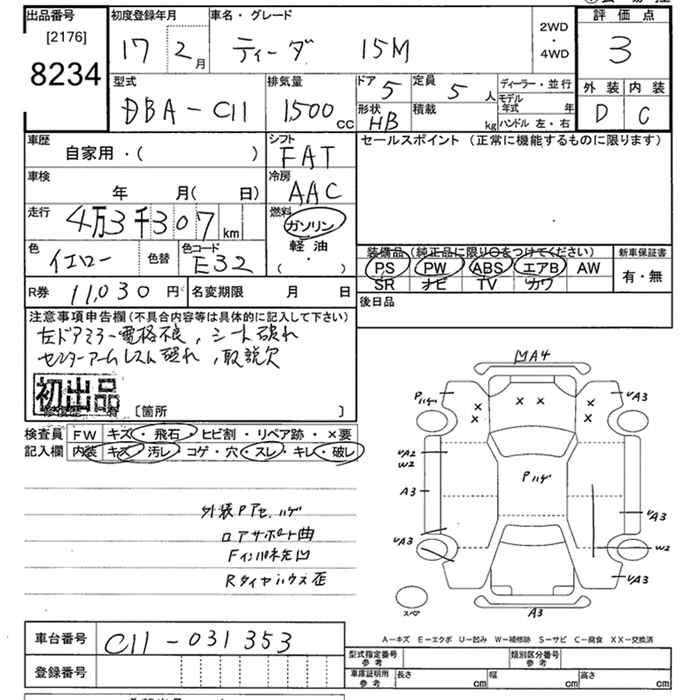 出品番号
[2176]
8234
初度登録年月
17 2月
車名・グレード
ティーダ 15M
2WD
・
4WD
評価点
3
外装 内装
D C
型式
DBA-C11
排気量
1,500 cc
ドア 5
定員 5 人
形状 HB
積載 kg
ディーラー・並行
モデル年式 年
ハンドル 左・右
車歴
自家用・( )
シフト
FAT
セールスポイント (正常に機能するものに限ります)
車検
年 月( 日)
冷房
AAC
走行
4万3千307km
燃料
ガソリン
軽油
( ・ )
色
イエロー
色替
色コード
E32
装備品 (純正品に限り○をつけてください)
PS PW ABS エアB AW
SR ナビ TV カワ
新車保証書
有・無
R券 11,030円
名変期限 月 日
後日品
注意事項申告欄(不具合内容等は具体的に記入して下さい)
左ドアミラー電格不良, シート破れ
センターアームレスト破れ, 取説欠
初出品
[箇所 ]
検査員 FW キズ・飛石・ヒビ割・リペア跡・×要
記入欄 内装 キズ・汚レ・コゲ・穴・スレ・キレ・破レ
外装Pアセ、ハゲ
ロアサポート曲
Fインパネ先凹
Rタイヤハウス歪
MA4
Pハゲ
× × × ×
UA3
UA2
W2
Pハゲ
A3
UA3
UA3
W2
UA3
スペア
A3
A-キズ E-エクボ U-凹み W-補修跡 S-サビ C-腐食 XX-交換済
車台番号 C11-031353
登録番号
型式指定番号
参考
類別区分番号
参考
車庫証明用
参考
長さ cm
幅 cm
高さ cm